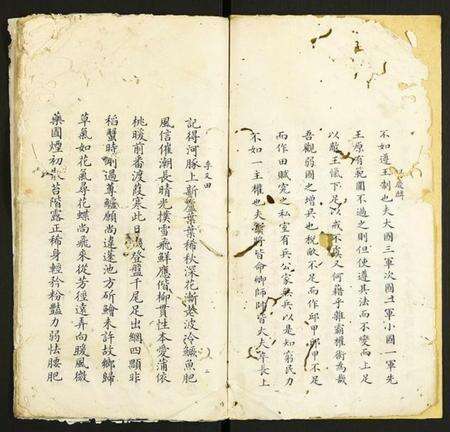 不如遵王制也夫大國三軍次國二軍小國一軍先
王原有範圍不過之則但使遵其法而不變而上足
以敵王愾下足以戒不虞又何藉乎雜霸權術為哉
吾觀弱國之增兵也稅畝不足而作邱甲邱甲不足
而作田賦究之私室有兵公家無兵以是知窮民力
不如一主權也夫將皆命卿師皆大夫長上
文田
記得河豚上新蘆葉葉秋深花漸老波冷鱖魚肥
風信催潮長晴光撲雪飛鮮應偕柳貫性本愛蒲依
桃暖前番渡葭寒此日磯登盤千尾足出網四顋非
稻蟹時剛過蓴鱸願尚違蓬池方斫鱠未許故鄉歸
草氣如花氣尋花蝶尚飛來從芳徑遠弄向暖風微
藥圃煙初苔階露正稀身輕矜粉豔力弱怯腰肥